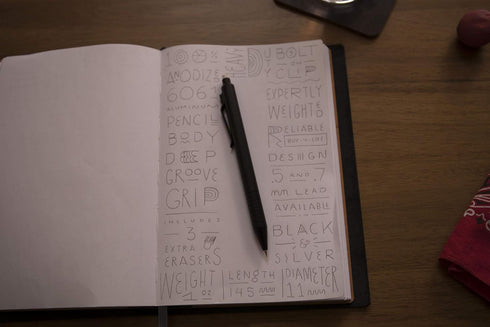 100%
ANODIZED
6061
ALUMINUM
PENCIL
BODY
DEEP
GROOVE
GRIP
INCLUDES
3
EXTRA
ERASERS
HEAVY
DUTY
BOLT
ON
CLIP
EXPERTLY
WEIGHTED
RELIABLE
BUY-4-LIFE
DESIGN
.5 AND .7
MM LEAD
AVAILABLE
IN
BLACK
&
SILVER
WEIGHT
1 OZ
LENGTH
145 MM
DIAMETER
11 MM